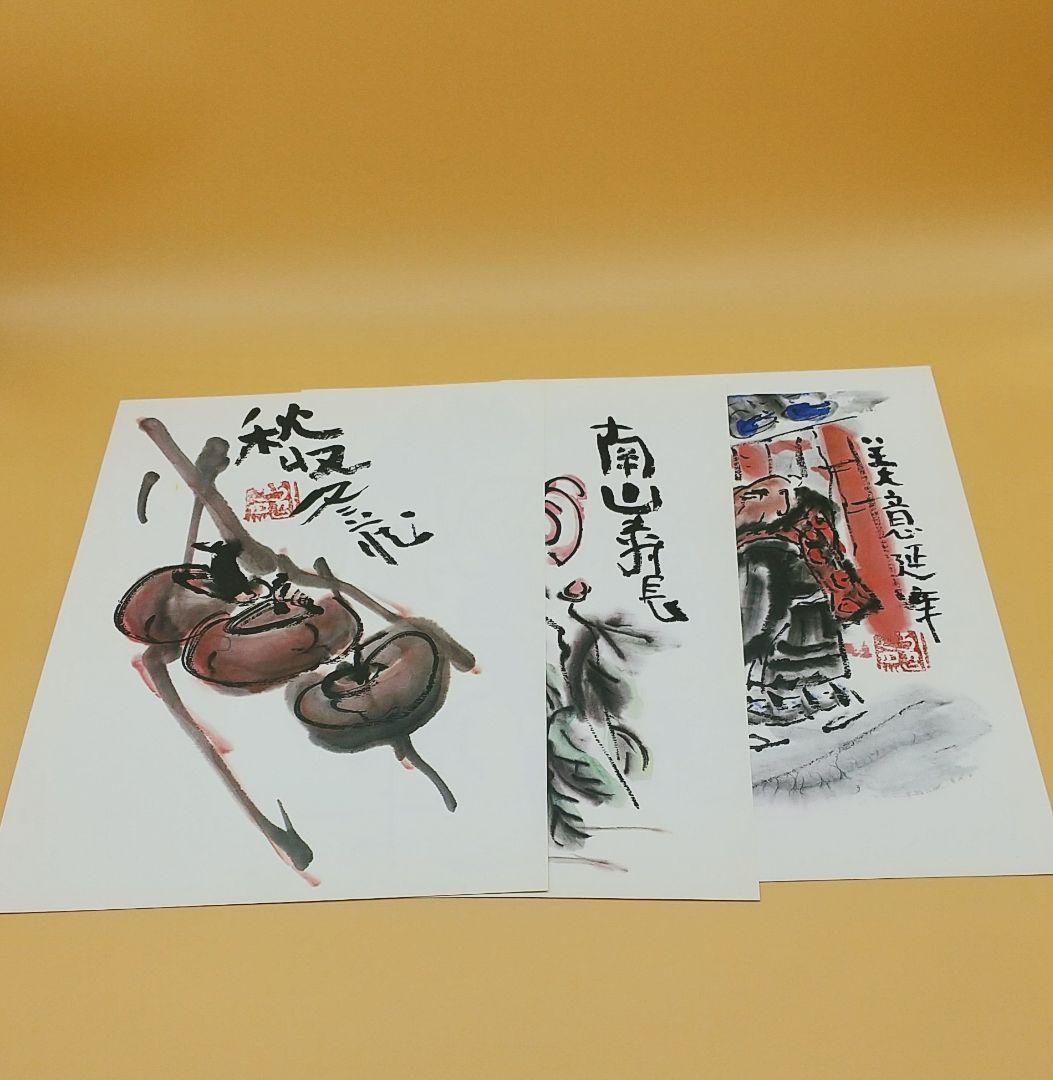 秋収
冬蔵
南山寿長
美意延年